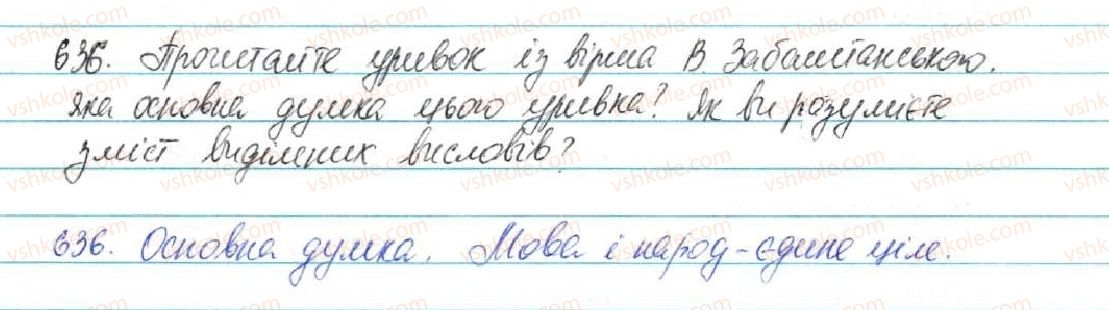 636. Прочитайте уривок із вірша В. Забаштанського.
Яка основна думка цього уривка? Як ви розумієте
зміст виділених висловів?
636. Основна думка. Мова і народ - єдине ціле.